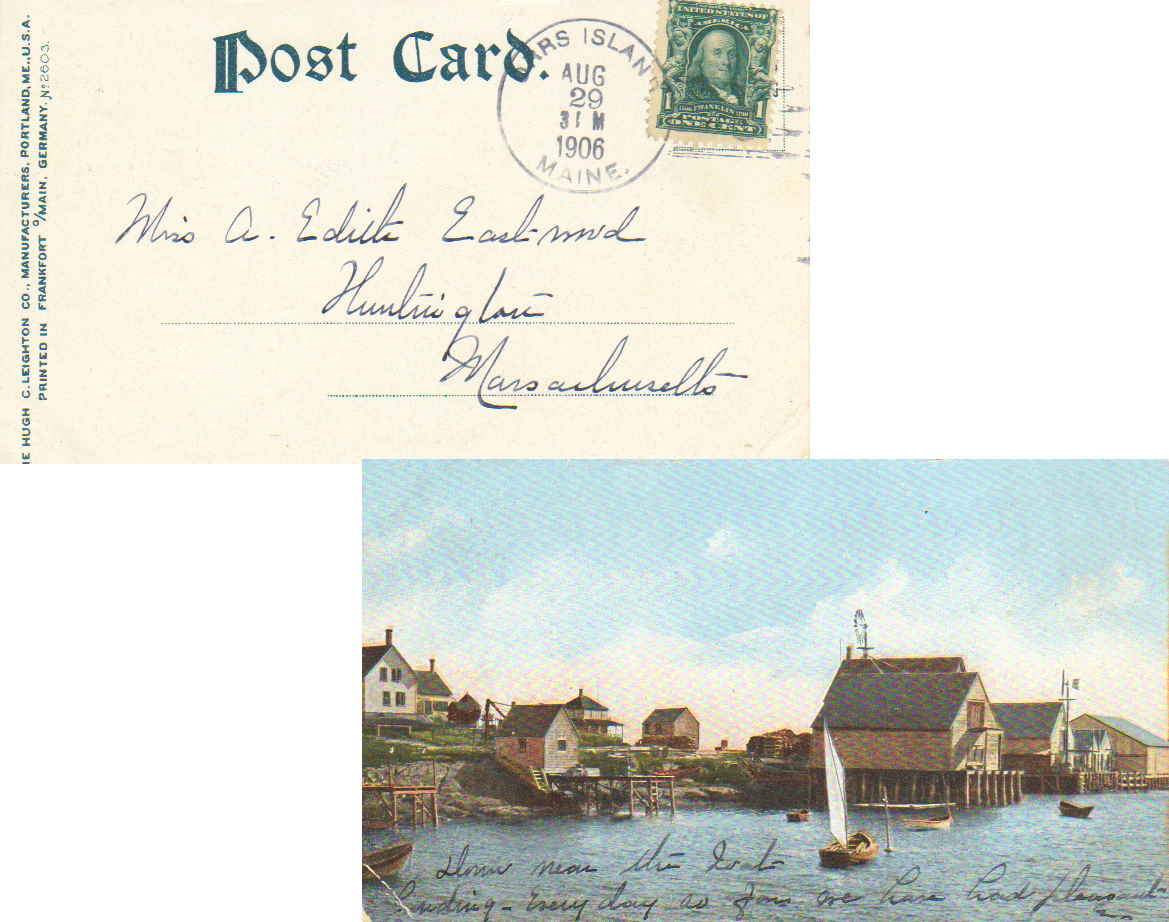 Post Card.
ARS ISLAN
AUG
29
31 M
1906
MAINE.
UNITED STATES OF
AMERICA
FRANKLIN
1 1
POSTAGE
ONE CENT
Miss A. Edith Eastwood
Huntington
Massachusetts
HE HUGH C. LEIGHTON CO., MANUFACTURERS, PORTLAND, ME., U.S.A.
PRINTED IN FRANKFORT o/MAIN, GERMANY. No 2603.
Down near the boat
landing - Every day so far we have had pleasant